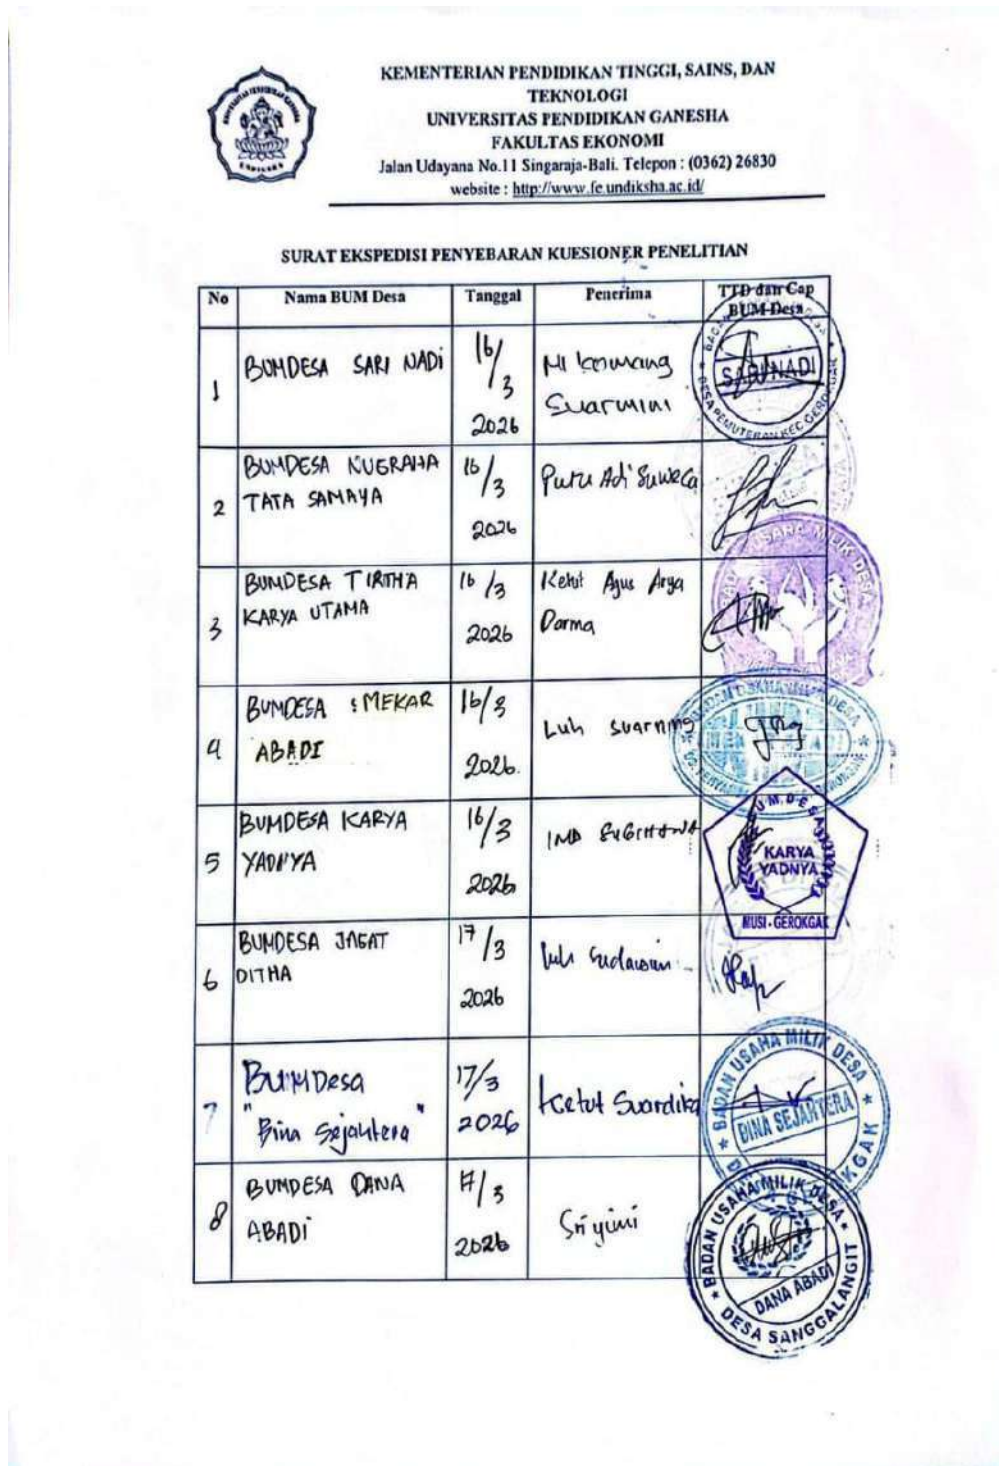 KEMENTERIAN PENDIDIKAN TINGGI, SAINS, DAN
TEKNOLOGI
UNIVERSITAS PENDIDIKAN GANESHA
FAKULTAS EKONOMI
Jalan Udayana No.11 Singaraja-Bali. Telepon : (0362) 26830
website : http://www.fe.undiksha.ac.id/
UNDIKSHA
SURAT EKSPEDISI PENYEBARAN KUESIONER PENELITIAN
No Nama BUM Desa Tanggal Penerima TTD dan Cap
BUM Desa
1 BUMDESA SARI NADI 16/3 2026 Ni Komang
Suarmini
SARI NADI
DESA PEMUTERAN KEC. GEROKGAK
2 BUMDESA NUGRAHA 16/3 2026 Putu Adi Suweca
TATA SAMAYA
3 BUMDESA TIRTHA 16/3 2026 Ketut Agus Arya
KARYA UTAMA Darma
USAHA MILIK DESA
4 BUMDESA MEKAR 16/3 2026. Luh Suarning
ABADI
BADAN USAHA MILIK DESA
5 BUMDESA KARYA 16/3 2026
YADNYA
B.U.M. DESA
KARYA
YADNYA
MUSI - GEROKGAK
6 BUMDESA JAGAT 17/3 2026 Luh
DITHA
7 BUMDesa 17/3 2026 Ketut Suardika
"Bina Sejahtera"
BADAN USAHA MILIK DESA
BINA SEJAHTERA
8 BUMDESA DANA 17/3 2026 Sriyini
ABADI
BADAN USAHA MILIK DESA
DANA ABADI
DESA SANGGALANGIT